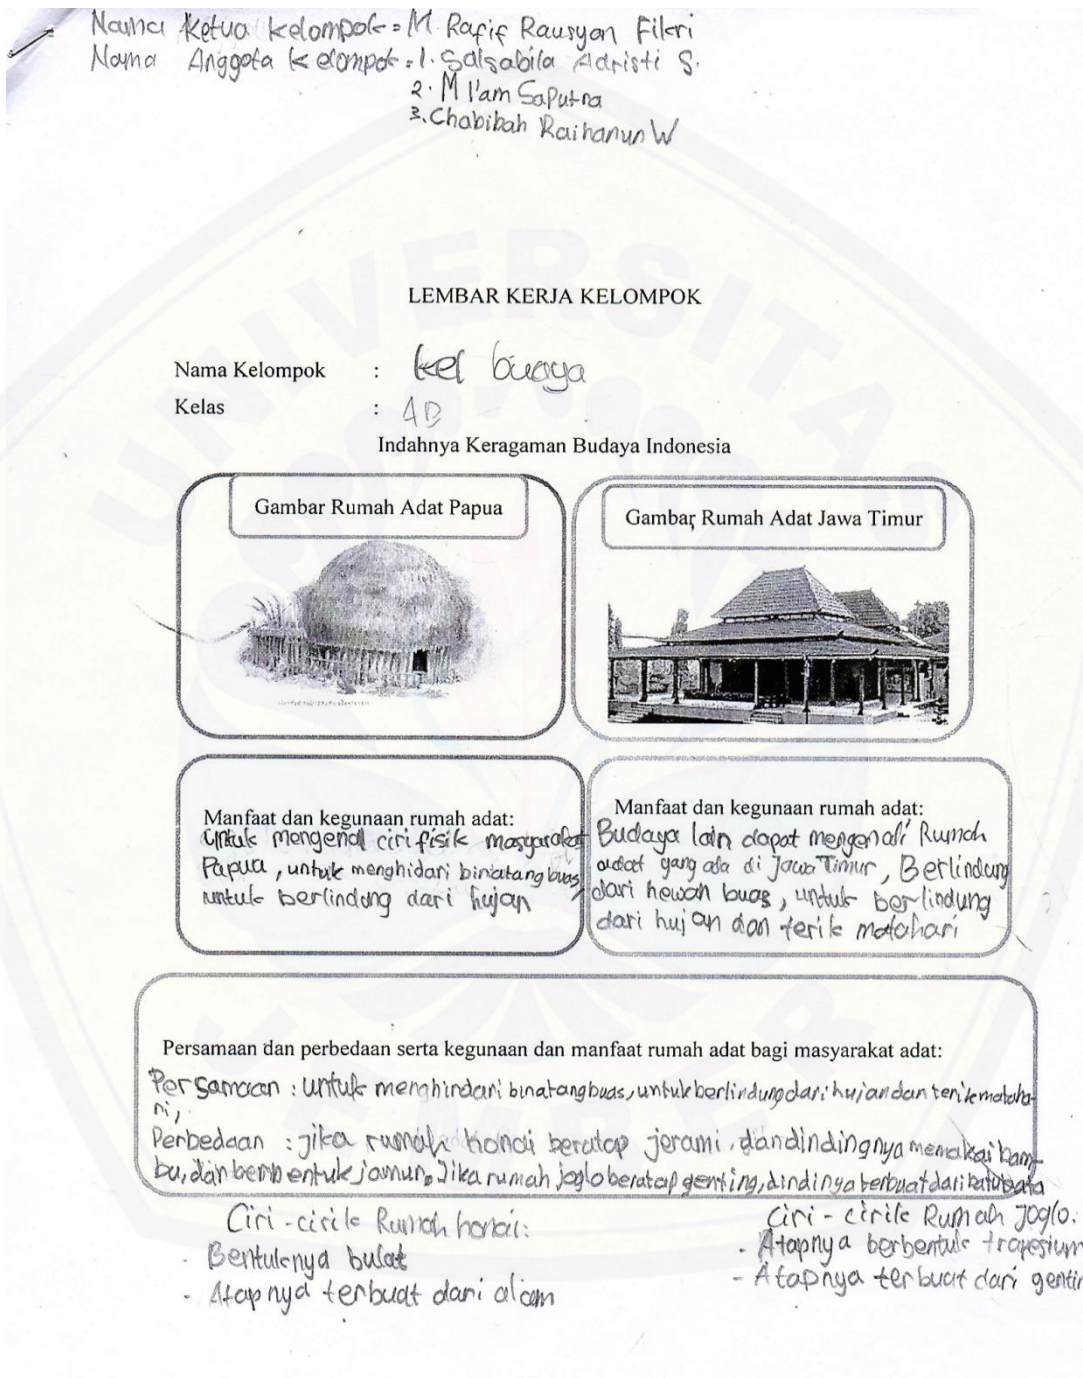 Nama Ketua Kelompok = M. Rafif Rausyan Fikri
Nama Anggota Kelompok = 1. Salsabila Adristi S.
2. M I'am Saputra
3. Chabibah Raihanun W
LEMBAR KERJA KELOMPOK
Nama Kelompok : kel buaya
Kelas : 4B
Indahnya Keragaman Budaya Indonesia
Gambar Rumah Adat Papua
Gambar Rumah Adat Jawa Timur
Manfaat dan kegunaan rumah adat:
Untuk mengenal ciri fisik masyarakat
Papua, untuk menghidari binatang buas,
untuk berlindung dari hujan
Manfaat dan kegunaan rumah adat:
Budaya lain dapat mengenali Rumah
adat yang ada di Jawa Timur, Berlindung
dari hewan buas, untuk berlindung
dari hujan dan terik matahari
Persamaan dan perbedaan serta kegunaan dan manfaat rumah adat bagi masyarakat adat:
Persamaan : untuk menghindari binatang buas, untuk berlindung dari hujan dan terik mataha-
ri,
Perbedaan : jika rumah honai beratap jerami, dan dindingnya memakai bam-
bu, dan berbentuk jamur. Jika rumah joglo beratap genting, dindinya terbuat dari batu bata
Ciri-cirik Rumah honai:
- Bentuknya bulat
- Atapnya terbuat dari alam
Ciri-cirik Rumah Joglo:
- Atapnya berbentuk trapesium
- Atapnya terbuat dari gentin
UNIVERSITAS
JEMBER